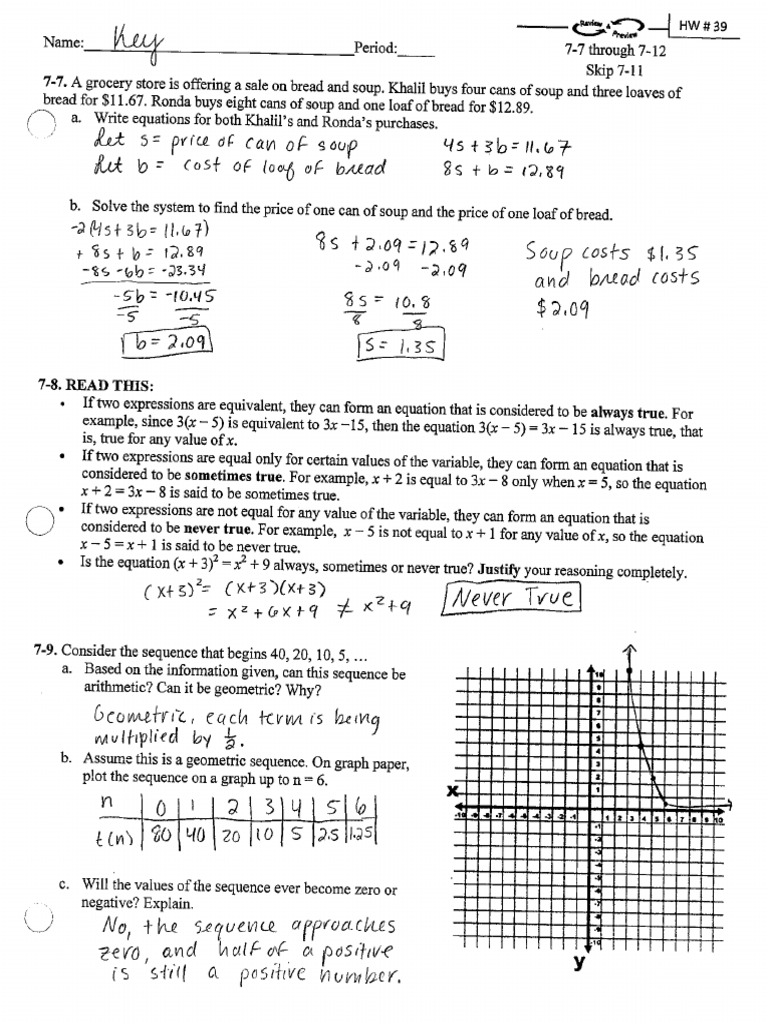 Review
Preview
HW # 39
Name: Key Period:
7-7 through 7-12
Skip 7-11
7-7. A grocery store is offering a sale on bread and soup. Khalil buys four cans of soup and three loaves of
bread for $11.67. Ronda buys eight cans of soup and one loaf of bread for $12.89.
a. Write equations for both Khalil's and Ronda's purchases.
Let s = price of can of soup 4s + 3b = 11.67
Let b = cost of loaf of bread 8s + b = 12.89
b. Solve the system to find the price of one can of soup and the price of one loaf of bread.
-2(4s + 3b = 11.67)
+ 8s + b = 12.89
-8s -6b = -23.34
-5b = -10.45
-5 -5
b = 2.09
8s + 2.09 = 12.89
-2.09 -2.09
8s = 10.8
8 8
s = 1.35
Soup costs $1.35
and bread costs
$2.09
7-8. READ THIS:
• If two expressions are equivalent, they can form an equation that is considered to be always true. For
example, since 3(x – 5) is equivalent to 3x –15, then the equation 3(x – 5) = 3x – 15 is always true, that
is, true for any value of x.
• If two expressions are equal only for certain values of the variable, they can form an equation that is
considered to be sometimes true. For example, x + 2 is equal to 3x – 8 only when x = 5, so the equation
x + 2 = 3x – 8 is said to be sometimes true.
• If two expressions are not equal for any value of the variable, they can form an equation that is
considered to be never true. For example, x – 5 is not equal to x + 1 for any value of x, so the equation
x – 5 = x + 1 is said to be never true.
• Is the equation (x + 3)² = x² + 9 always, sometimes or never true? Justify your reasoning completely.
(x+3)² = (x+3)(x+3)
= x² + 6x + 9 ≠ x² + 9
Never True
7-9. Consider the sequence that begins 40, 20, 10, 5, …
a. Based on the information given, can this sequence be
arithmetic? Can it be geometric? Why?
Geometric, each term is being
multiplied by ½.
b. Assume this is a geometric sequence. On graph paper,
plot the sequence on a graph up to n = 6.
n 0 1 2 3 4 5 6
t(n) 80 40 20 10 5 2.5 1.25
c. Will the values of the sequence ever become zero or
negative? Explain.
No, the sequence approaches
zero, and half of a positive
is still a positive number.
x
y